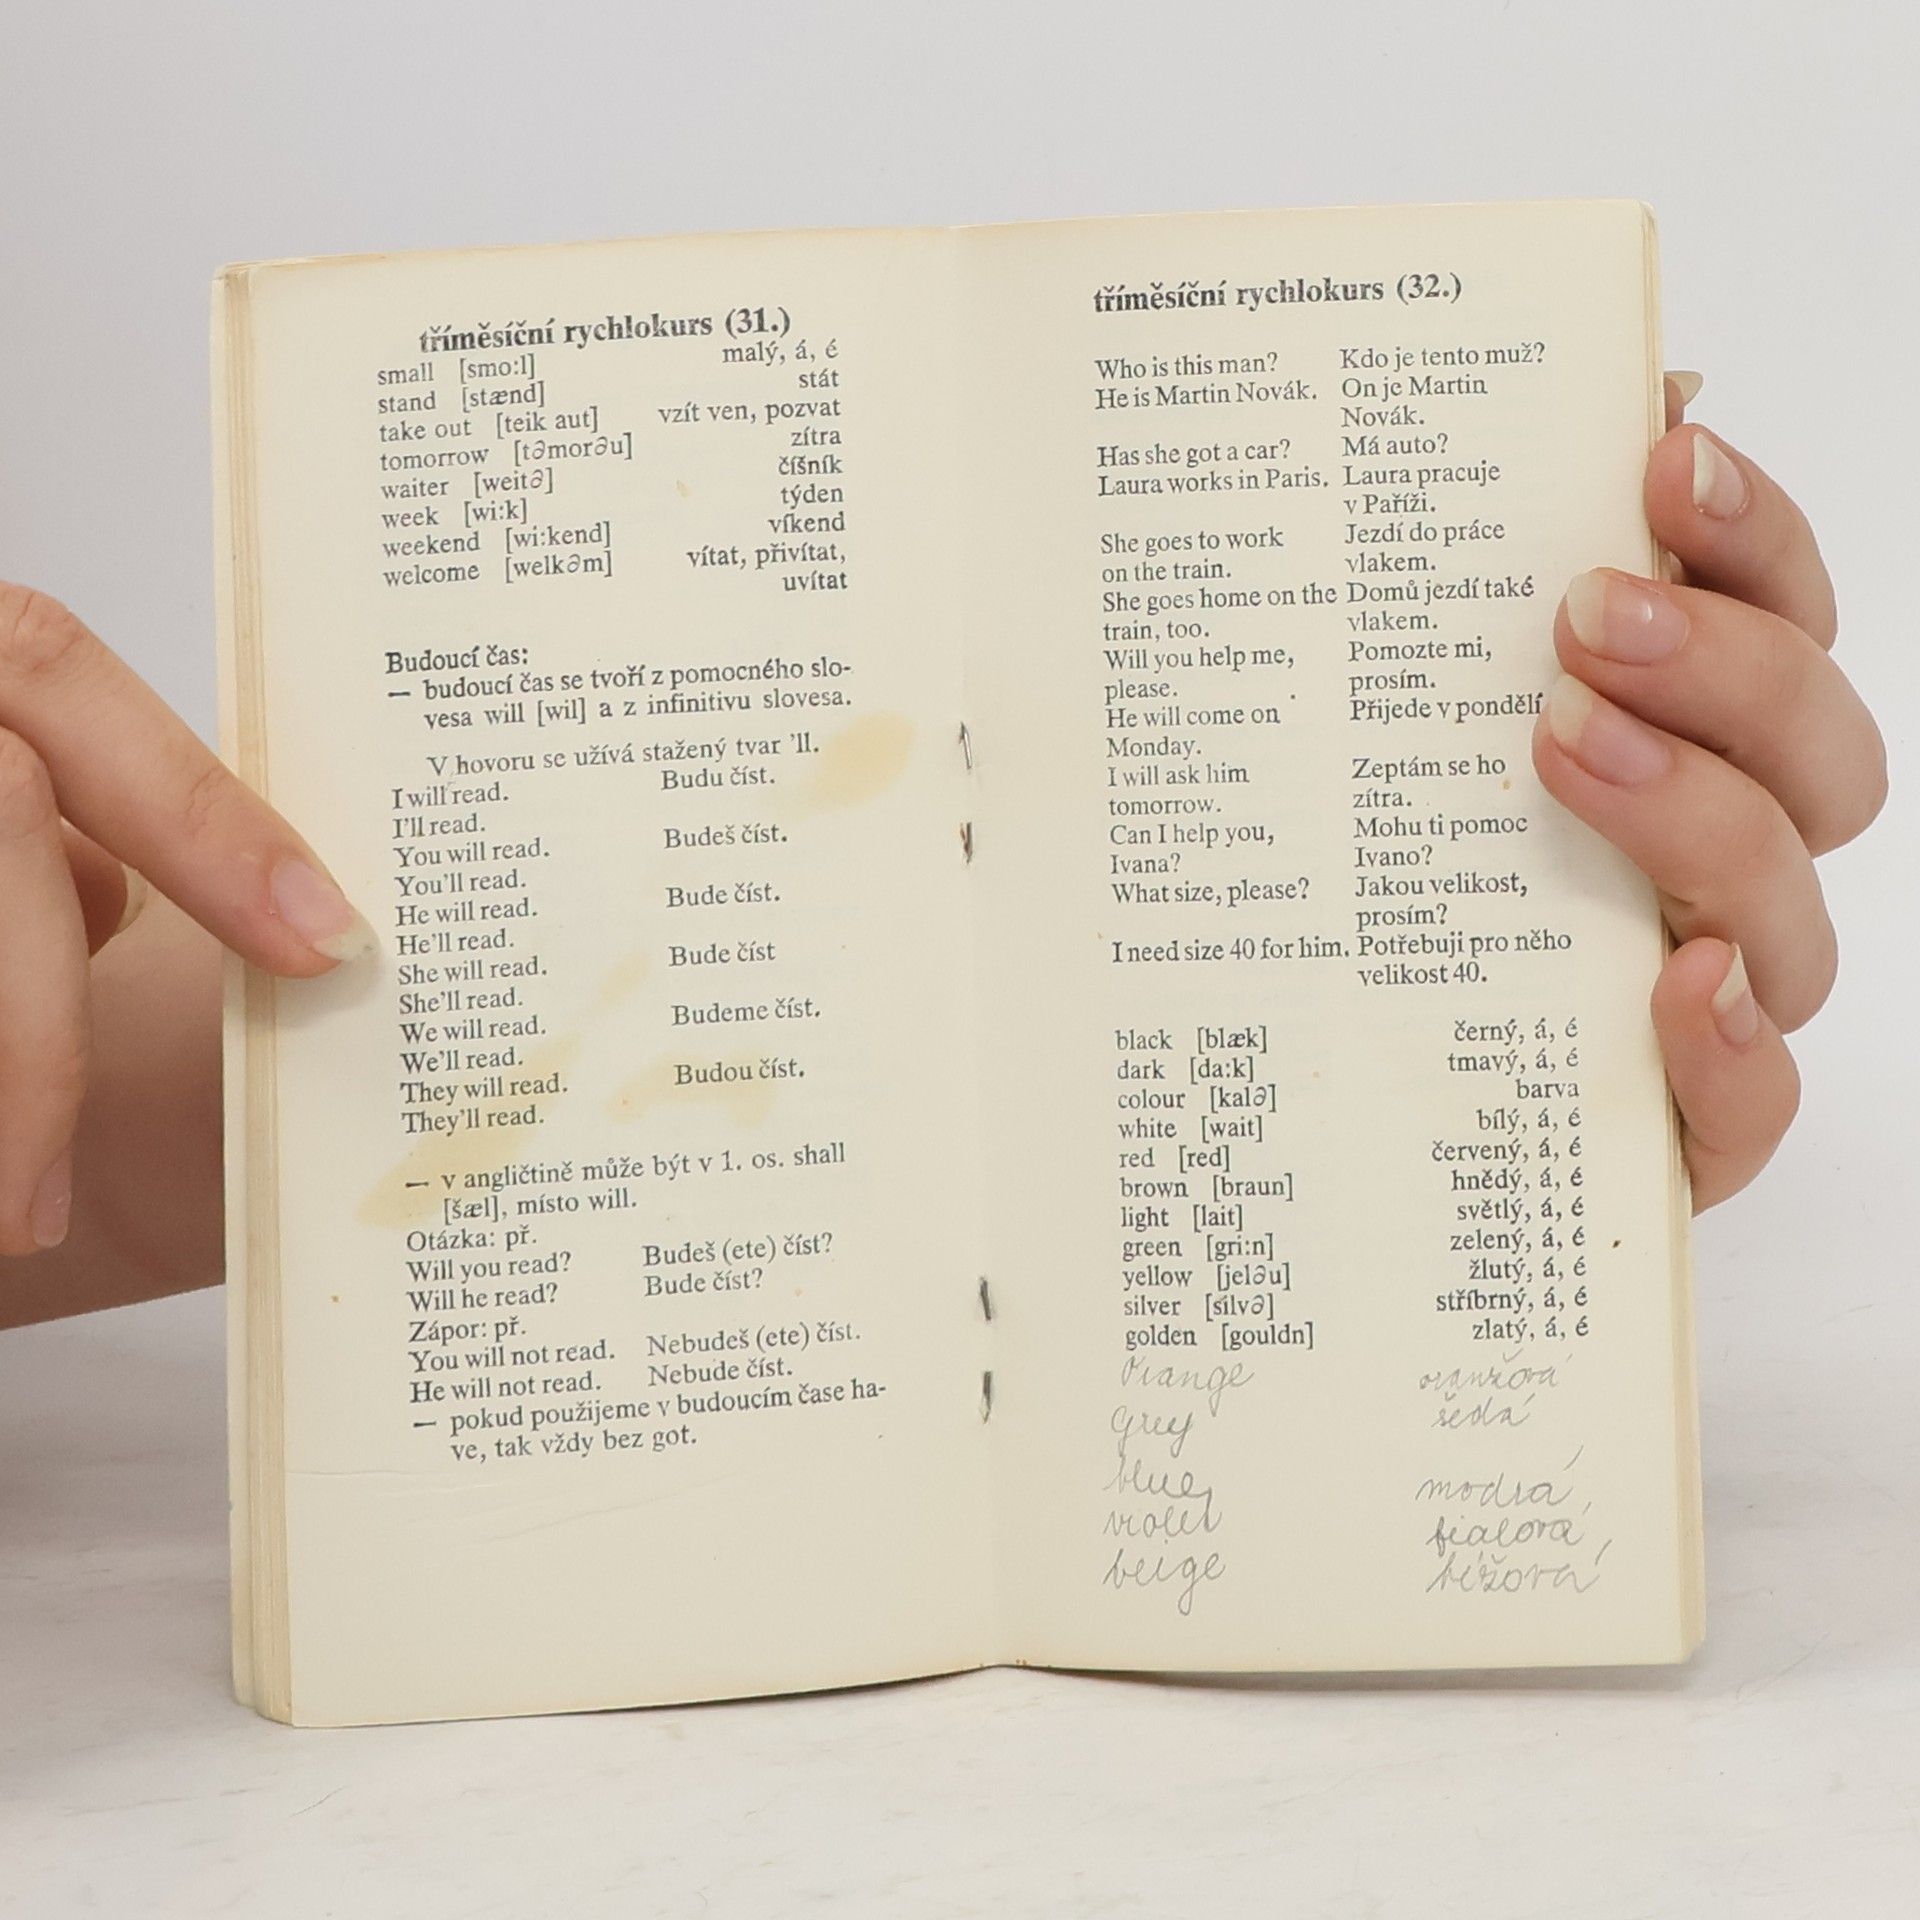 tříměsíční rychlokurs (31.)
small [smo:l] malý, á, é
stand [stænd] stát
take out [teik aut] vzít ven, pozvat
tomorrow [təmorəu] zítra
waiter [weitə] číšník
week [wi:k] týden
weekend [wi:kend] víkend
welcome [welkəm] vítat, přivítat,
uvítat
Budoucí čas:
— budoucí čas se tvoří z pomocného slo-
vesa will [wil] a z infinitivu slovesa.
V hovoru se užívá stažený tvar ’ll.
I will read. Budu číst.
I’ll read.
You will read. Budeš číst.
You’ll read.
He will read. Bude číst.
He’ll read.
She will read. Bude číst
She’ll read.
We will read. Budeme číst.
We’ll read.
They will read. Budou číst.
They’ll read.
— v angličtině může být v 1. os. shall
[šæl], místo will.
Otázka: př.
Will you read? Budeš (ete) číst?
Will he read? Bude číst?
Zápor: př.
You will not read. Nebudeš (ete) číst.
He will not read. Nebude číst.
— pokud použijeme v budoucím čase ha-
ve, tak vždy bez got.
tříměsíční rychlokurs (32.)
Who is this man? Kdo je tento muž?
He is Martin Novák. On je Martin
Novák.
Has she got a car? Má auto?
Laura works in Paris. Laura pracuje
v Paříži.
She goes to work Jezdí do práce
on the train. vlakem.
She goes home on the Domů jezdí také
train, too. vlakem.
Will you help me, Pomozte mi,
please. prosím.
He will come on Přijede v pondělí
Monday.
I will ask him Zeptám se ho
tomorrow. zítra.
Can I help you, Mohu ti pomoc
Ivana? Ivano?
What size, please? Jakou velikost,
prosím?
I need size 40 for him. Potřebuji pro něho
velikost 40.
black [blæk] černý, á, é
dark [da:k] tmavý, á, é
colour [kalə] barva
white [wait] bílý, á, é
red [red] červený, á, é
brown [braun] hnědý, á, é
light [lait] světlý, á, é
green [gri:n] zelený, á, é
yellow [jeləu] žlutý, á, é
silver [silvə] stříbrný, á, é
golden [gouldn] zlatý, á, é
Orange oranžová
Grey šedá
blue modrá
violet fialová
beige béžová